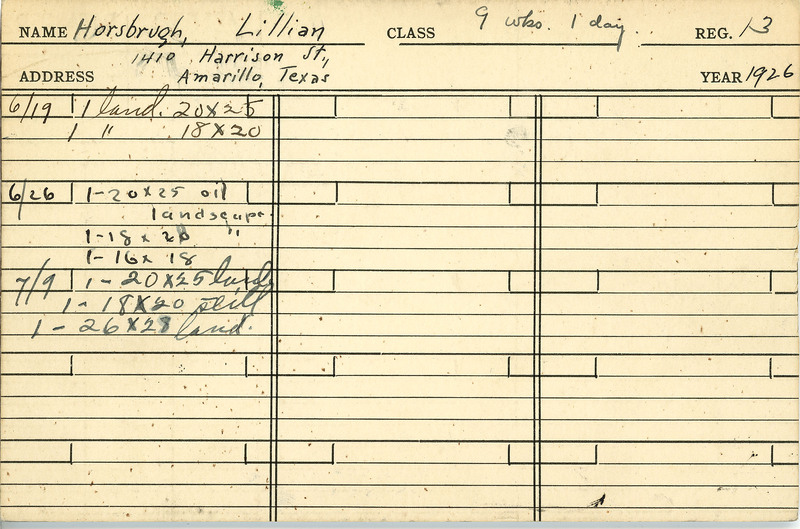 NAME Horsbrugh, Lillian CLASS 9 wks. 1 day. REG. 13
1410 Harrison St.,
ADDRESS Amarillo, Texas YEAR 1926
6/19 1 land. 20x25
1 " 18x20
6/26 1-20x25 oil
landscape
1-18x20 "
1-16x18
7/9 1-20x25 land
1-18x20 still
1-26x28 land.